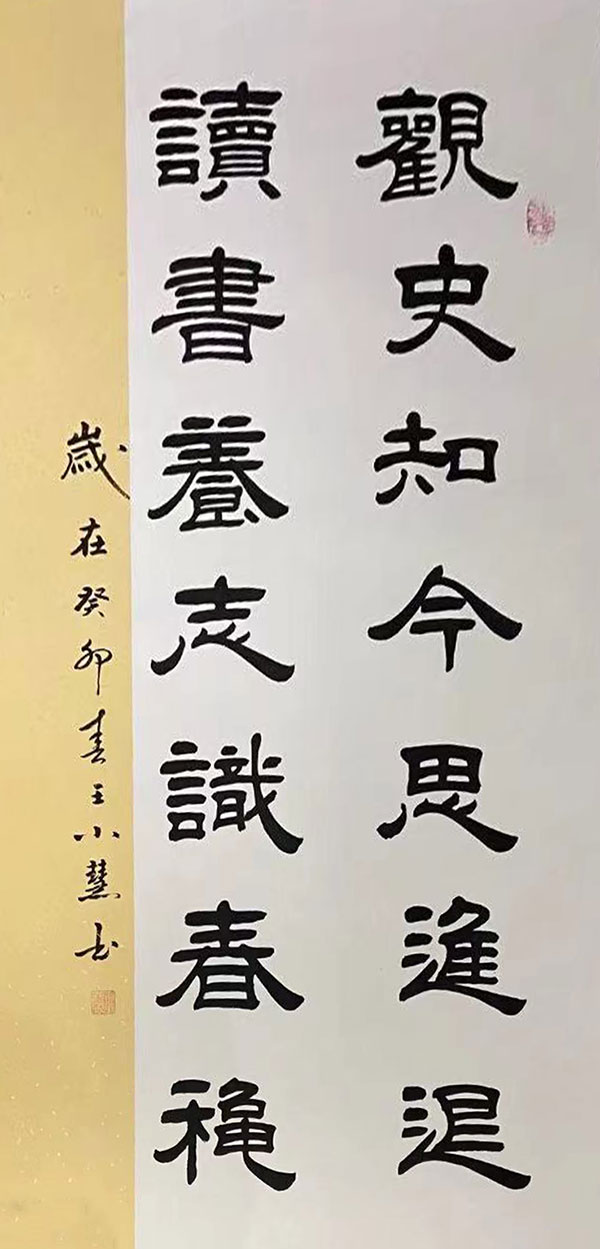 觀史知今思進退
讀書養志識春穐
歲在癸卯春王小慧书